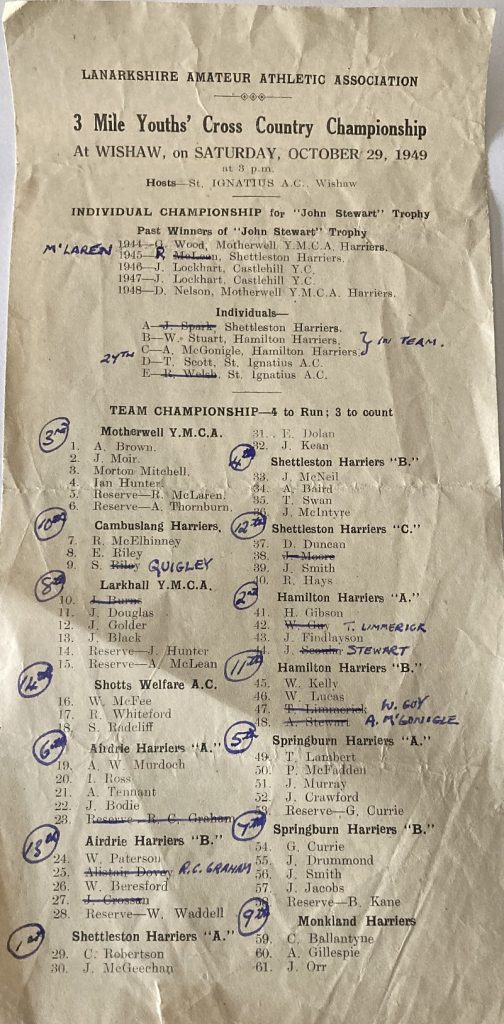 LANARKSHIRE AMATEUR ATHLETIC ASSOCIATION
3 Mile Youths' Cross Country Championship
At WISHAW, on SATURDAY, OCTOBER 29, 1949
at 3 p.m.
Hosts—St. IGNATIUS A.C., Wishaw
INDIVIDUAL CHAMPIONSHIP for "John Stewart" Trophy
Past Winners of "John Stewart" Trophy
1944—G. Wood, Motherwell Y.M.C.A. Harriers.
McLAREN 1945—R. McLean, Shettleston Harriers.
1946—J. Lockhart, Castlehill Y.C.
1947—J. Lockhart, Castlehill Y.C.
1948—D. Nelson, Motherwell Y.M.C.A. Harriers.
Individuals—
A—J. Spark, Shettleston Harriers.
B—W. Stuart, Hamilton Harriers. } IN TEAM.
C—A. McGonigle, Hamilton Harriers
24TH D—T. Scott, St. Ignatius A.C.
E—R. Welsh, St. Ignatius A.C.
TEAM CHAMPIONSHIP—4 to Run; 3 to count
3rd Motherwell Y.M.C.A.
1. A. Brown.
2. J. Moir.
3. Morton Mitchell.
4. Ian Hunter.
5. Reserve—R. McLaren.
6. Reserve—A. Thornburn.
10th Cambuslang Harriers.
7. R. McElhinney
8. E. Riley
9. S. Riley QUIGLEY
8th Larkhall Y.M.C.A.
10. J. Burns
11. J. Douglas
12. J. Golder
13. J. Black
14. Reserve—J. Hunter
15. Reserve—A. McLean
14th Shotts Welfare A.C.
16. W. McFee
17. R. Whiteford
18. S. Radcliff
6th Airdrie Harriers "A."
19. A. W. Murdoch
20. I. Ross
21. A. Tennant
22. J. Bodie
23. Reserve—R. C. Graham
13th Airdrie Harriers "B."
24. W. Paterson
25. Alistair Dovey R.C. GRAHAM
26. W. Beresford
27. J. Crossan
28. Reserve—W. Waddell
1st Shettleston Harriers "A."
29. C. Robertson
30. J. McGeechan
31. E. Dolan
32. J. Kean
4th Shettleston Harriers "B."
33. J. McNeil
34. A. Baird
35. T. Swan
36. J. McIntyre
12th Shettleston Harriers "C."
37. D. Duncan
38. J. Moore
39. J. Smith
40. R. Hays
2nd Hamilton Harriers "A."
41. H. Gibson
42. W. Guy T. LIMMERICK
43. J. Findlayson
44. J. STEWART
11th Hamilton Harriers "B."
45. W. Kelly
46. W. Lucas
47. T. Limmerick W. GUY
48. A. Stewart A. McGONIGLE
5th Springburn Harriers "A."
49. T. Lambert
50. P. McFadden
51. J. Murray
52. J. Crawford
53. Reserve—G. Currie
7th Springburn Harriers "B."
54. G. Currie
55. J. Drummond
56. J. Smith
57. J. Jacobs
58. Reserve—B. Kane
9th Monkland Harriers
59. C. Ballantyne
60. A. Gillespie
61. J. Orr